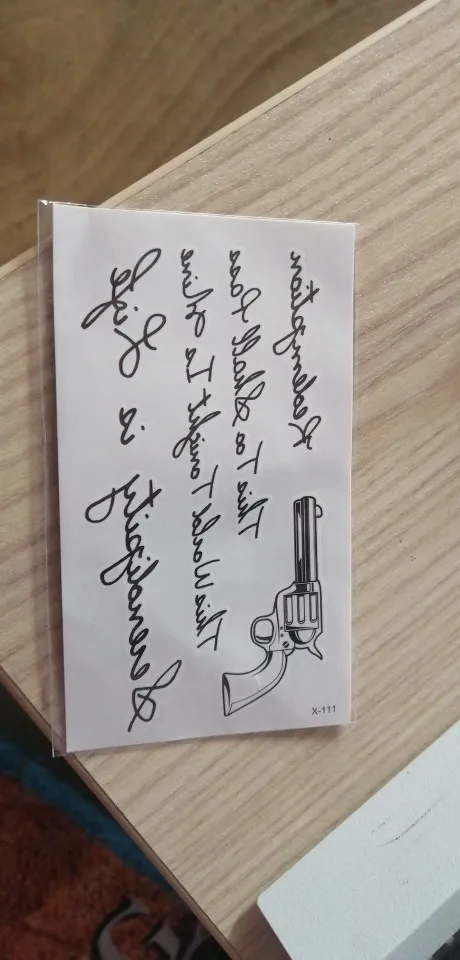 Redemption
This Too Shall Pass
This World Tonight Is Mine
Serendipity is Life
X-111